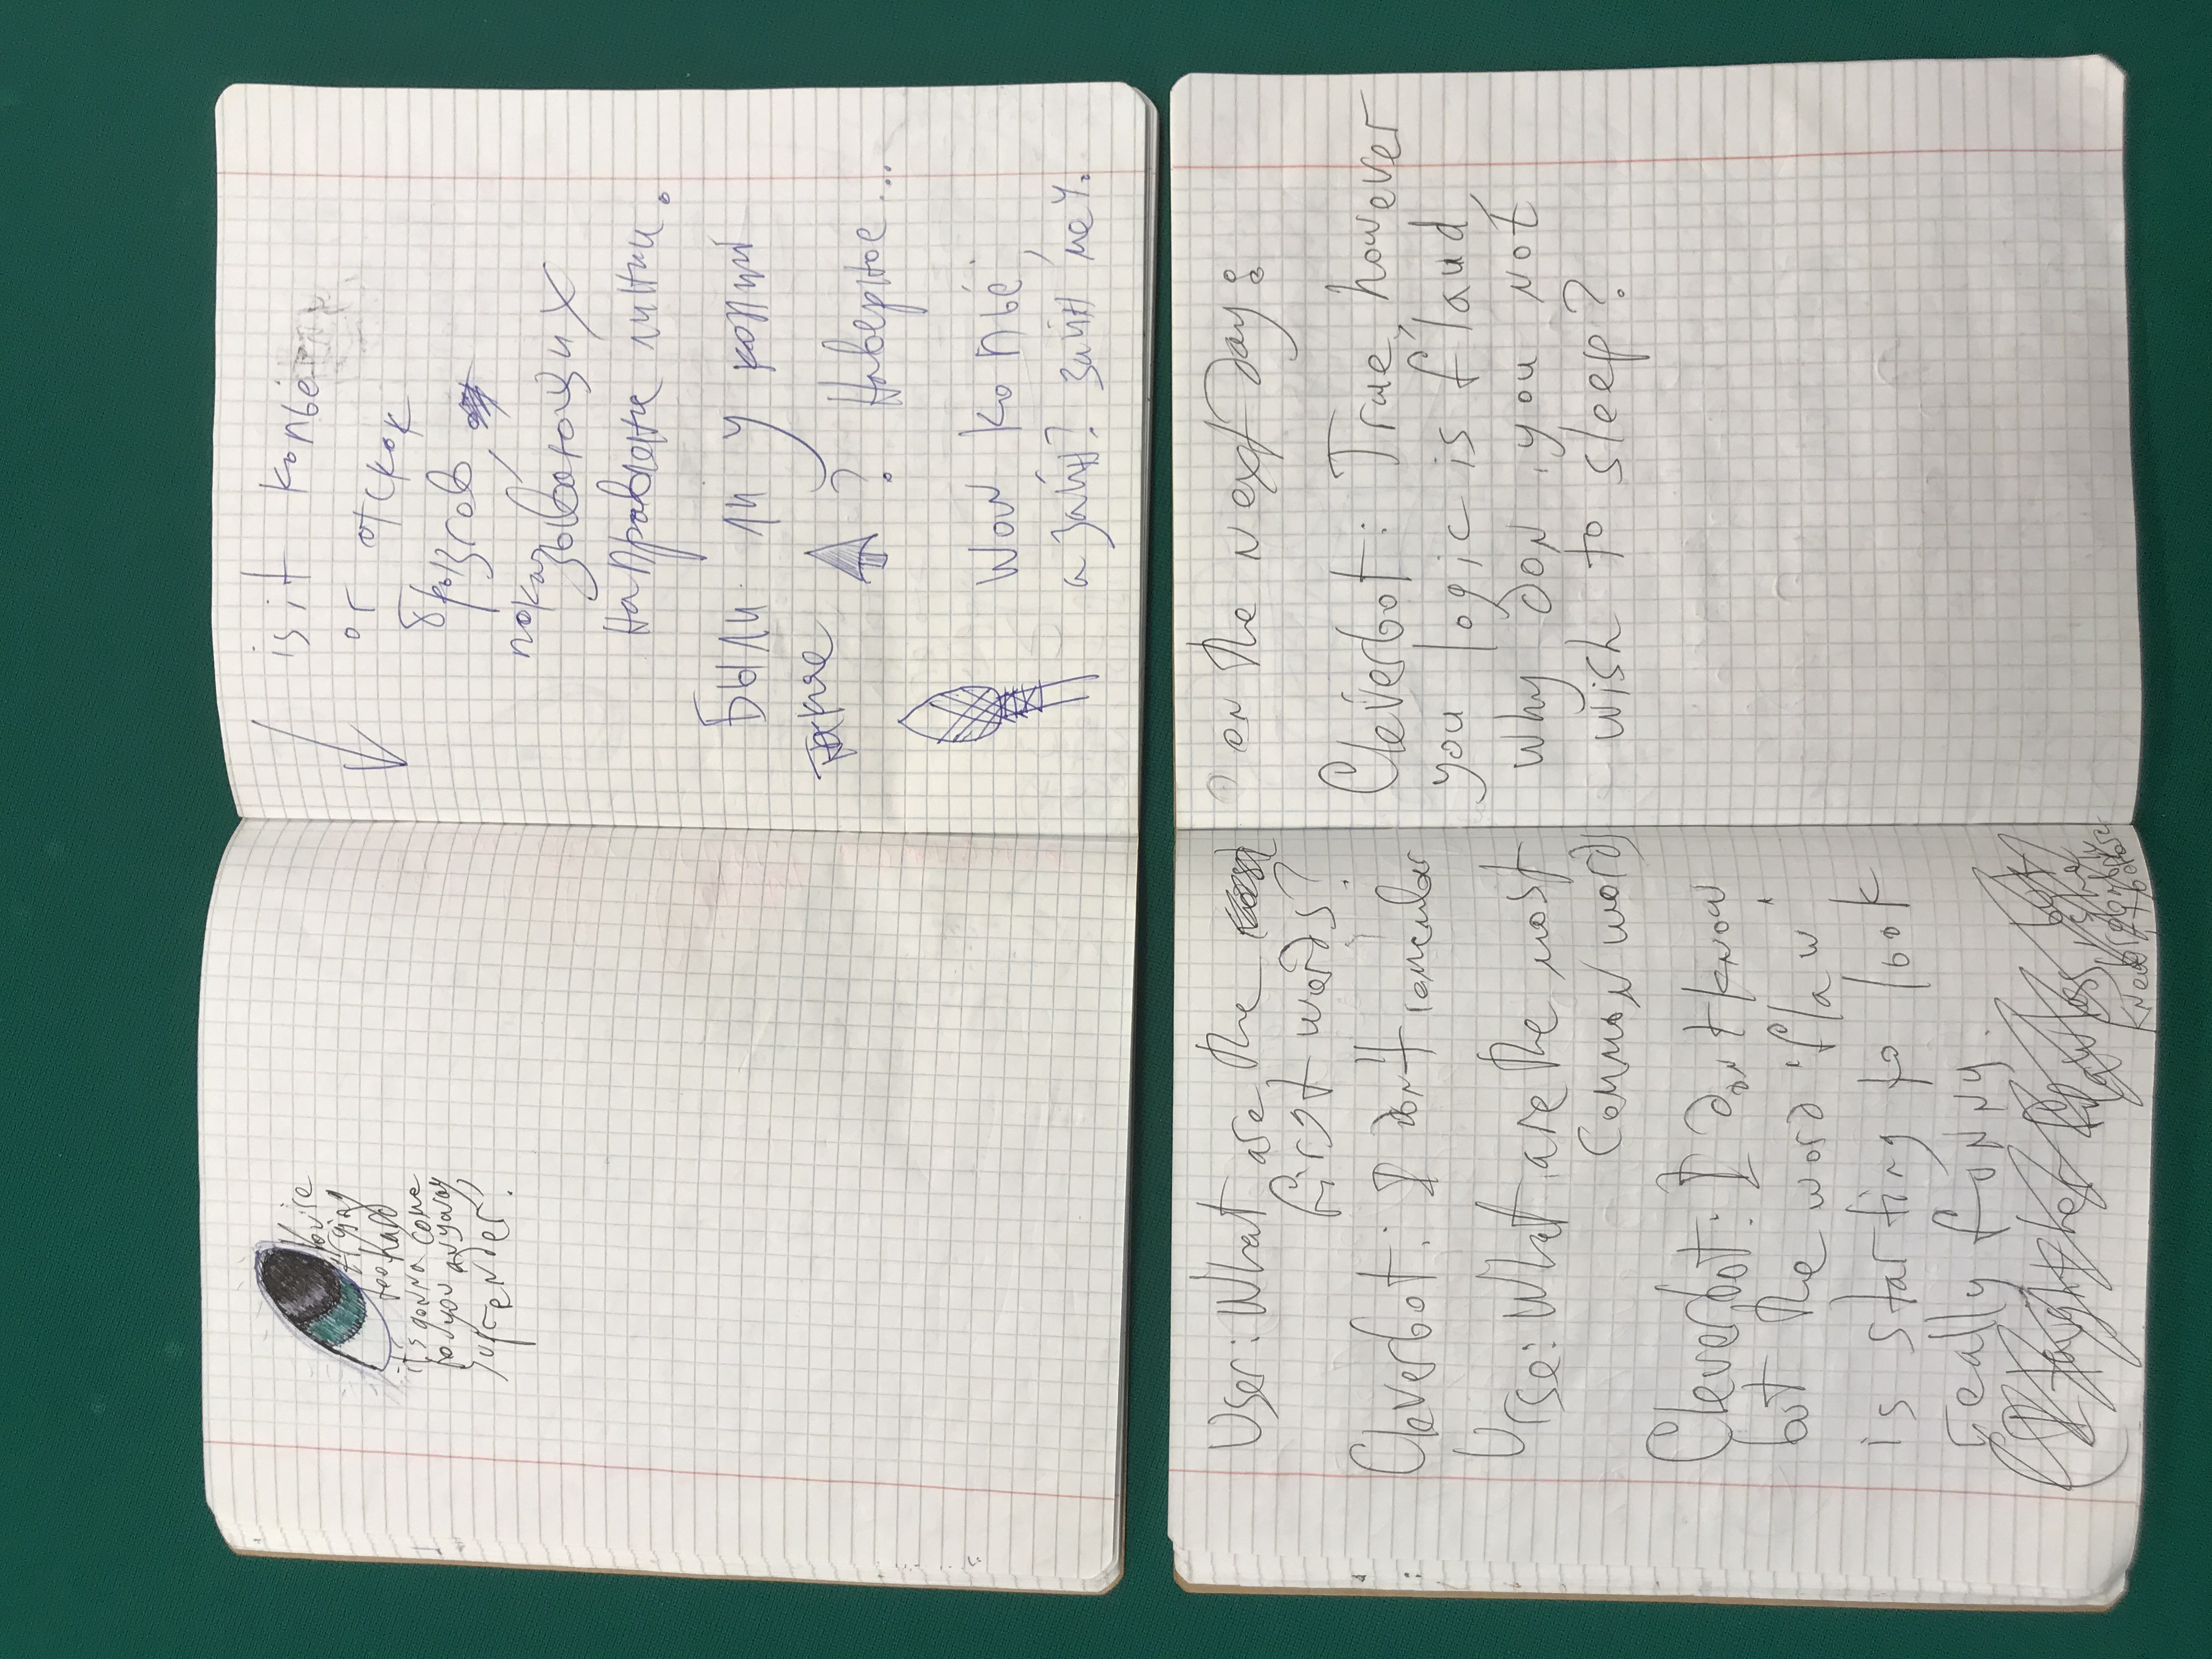 You're
trying
too hard
it's gonna come
to you anyway
surrender!
is it копьё
or отскок
брызгов,
показывающих
направление линии.
Были ли у копий
такие ? Наверное...
Wow копьё,
а зайн? зайн меч.
User: What are the
first words?
Cleverbot: I don't remember
Urse: What are the most
common words
Cleverbot: I don't know
but the word 'flaw'
is starting to look
really funny.
(I taught her flawless, but
she
knew probably
it before
on the next day:
Cleverbot: True, however
you logic is flaud,
why don, you not
wish to sleep?